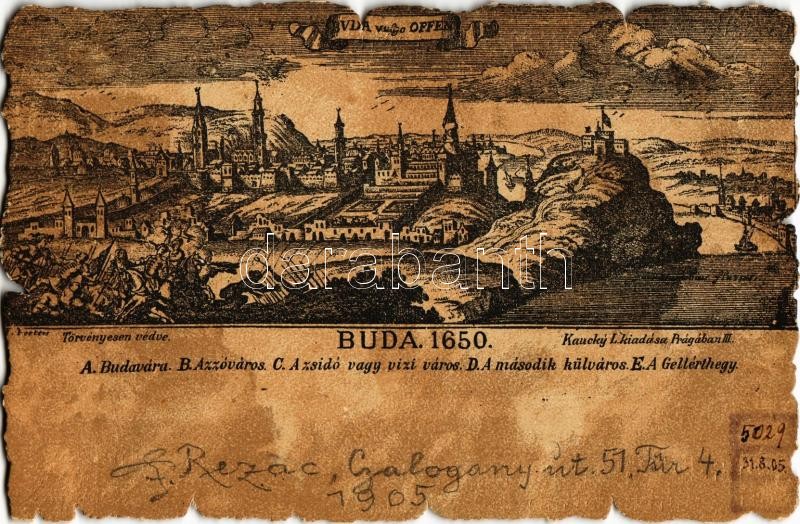 BUDA vulgo OFFEN
darabanth
Törvényesen védve.
BUDA. 1650.
Kaucký L. kiadása Prágában III.
A. Budavára. B. Azzóváros. C. A zsidó vagy vizi város. D. A második külváros. E. A Gellérthegy.
5029
31.8.05.
Rezac, Czalogany út. 51, Tür 4.
1905